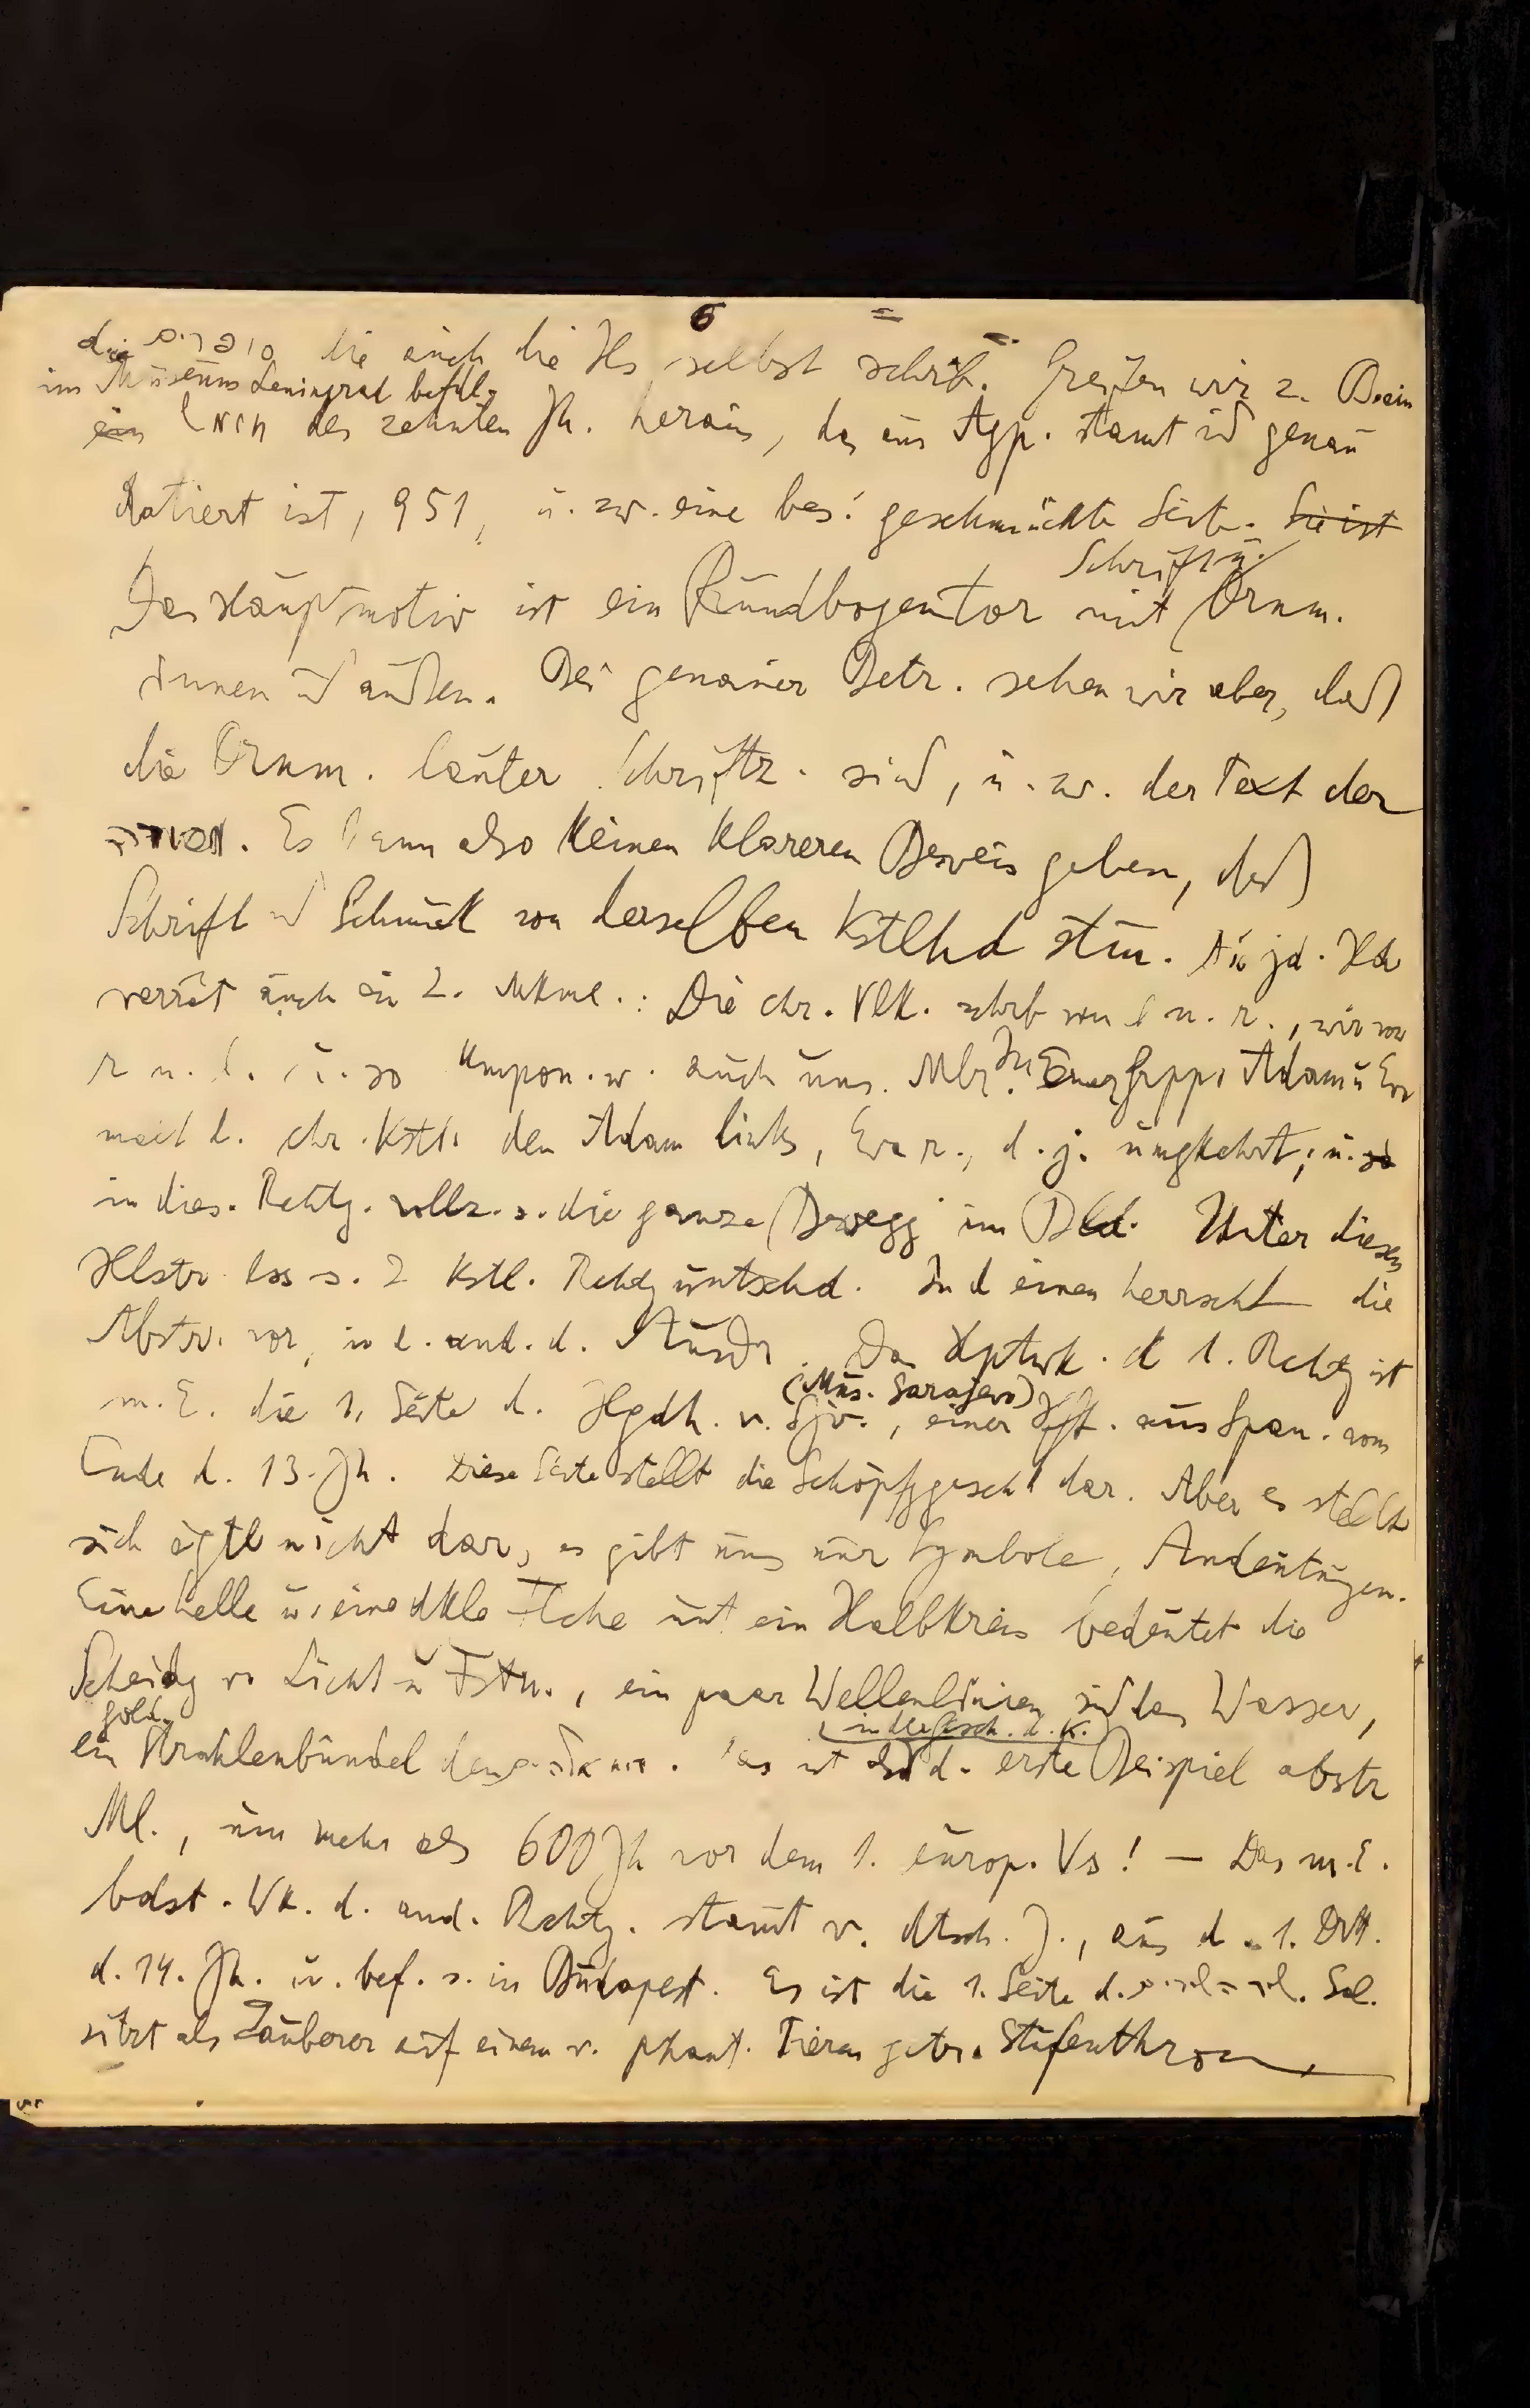 6
die סופרים die auch die Hs selbst schrb. Greifen wir z. B. ein
im Museum Leningrad befdl.
ein תנך des zehnten Jh. heraus, das aus Ägp. stamt ud genau
datiert ist, 951, u. zw. eine bes. geschmückte Seite. Sie ist
Schrift u.
Das Hauptmotiv ist ein Rundbogentor mit Ornm.
innen ud außen. Bei genauer Betr. sehen wir aber, daß
die Ornm. lauter Schriftz. sind, u. zw. der Text der
Es kann also keinen klareren Beweis geben, daß
Schrift ud Schmuck von derselben Kstlhd stm. jd. Hdr
verrät auch ein 2. Mkml.: Die chr. Vlk. schrb von l n. r., wir von
r n. l. u. so kompon. w. auch uns. Mlr. In Einer Grpp. Adam u Eva
malt d. chr. Kstl. den Adam links, Eva r., d. j. umgkehrt; u. so
in dies. Rchtg. vollz. s. die ganze Bewegg im Bld. Unter diesen
Hlstr. lss s. 2 kstl. Rchtg untschd. In d einen herrscht die
Abstr. vor, in d. and. d. Ausdr. Das Hptwk. d 1. Rchtg ist
(Mus. Sarajevo)
m. E. die 1. Seite d. Hgdh. v. Sjv., einer Hft. aus Span. vom
Ende d. 13. Jh. Diese Seite stellt die Schöpfggescht dar. Aber es stellt
sich egtl nicht dar, es gibt uns nur Symbole, Andeutungen.
Eine helle u. eine dkle Flche mit ein Halbkreis bedeutet die
Scheidg v. Licht u Fstn., ein paar Wellenlinien sind das Wasser,
gold.
(in der Gesch. d. K.)
ein Strahlenbündel den Das ist d. erste Beispiel abstr
Ml., um mehr als 600 Jh vor dem 1. europ. Vs! — Das m. E.
bdst. Wk. d. and. Rchtg. stamt v. dtsch. J., aus d. 1. Drtt.
d. 14. Jh. u. bef. s. in Budapest. Es ist die 1. Seite d. Sal.
sitzt als Zauberer auf einem v. phant. Tieren getr. Stufenthron